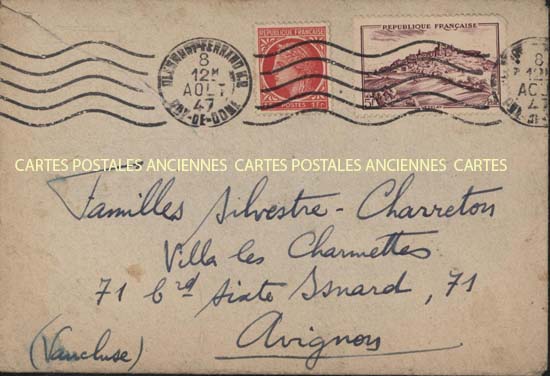 CLERMONT-FERRAND R.P.
8
12H
AOUT
47
PUY-DE-DOME
REPUBLIQUE FRANÇAISE
POSTES 1F
REPUBLIQUE FRANÇAISE
VEZELAY
8
12H
AOUT
47
CARTES POSTALES ANCIENNES CARTES POSTALES ANCIENNES CARTES
Familles Silvestre-Charreton
Villa les Charmettes
71 brd Sixte Isnard, 71
Avignon
(Vaucluse)